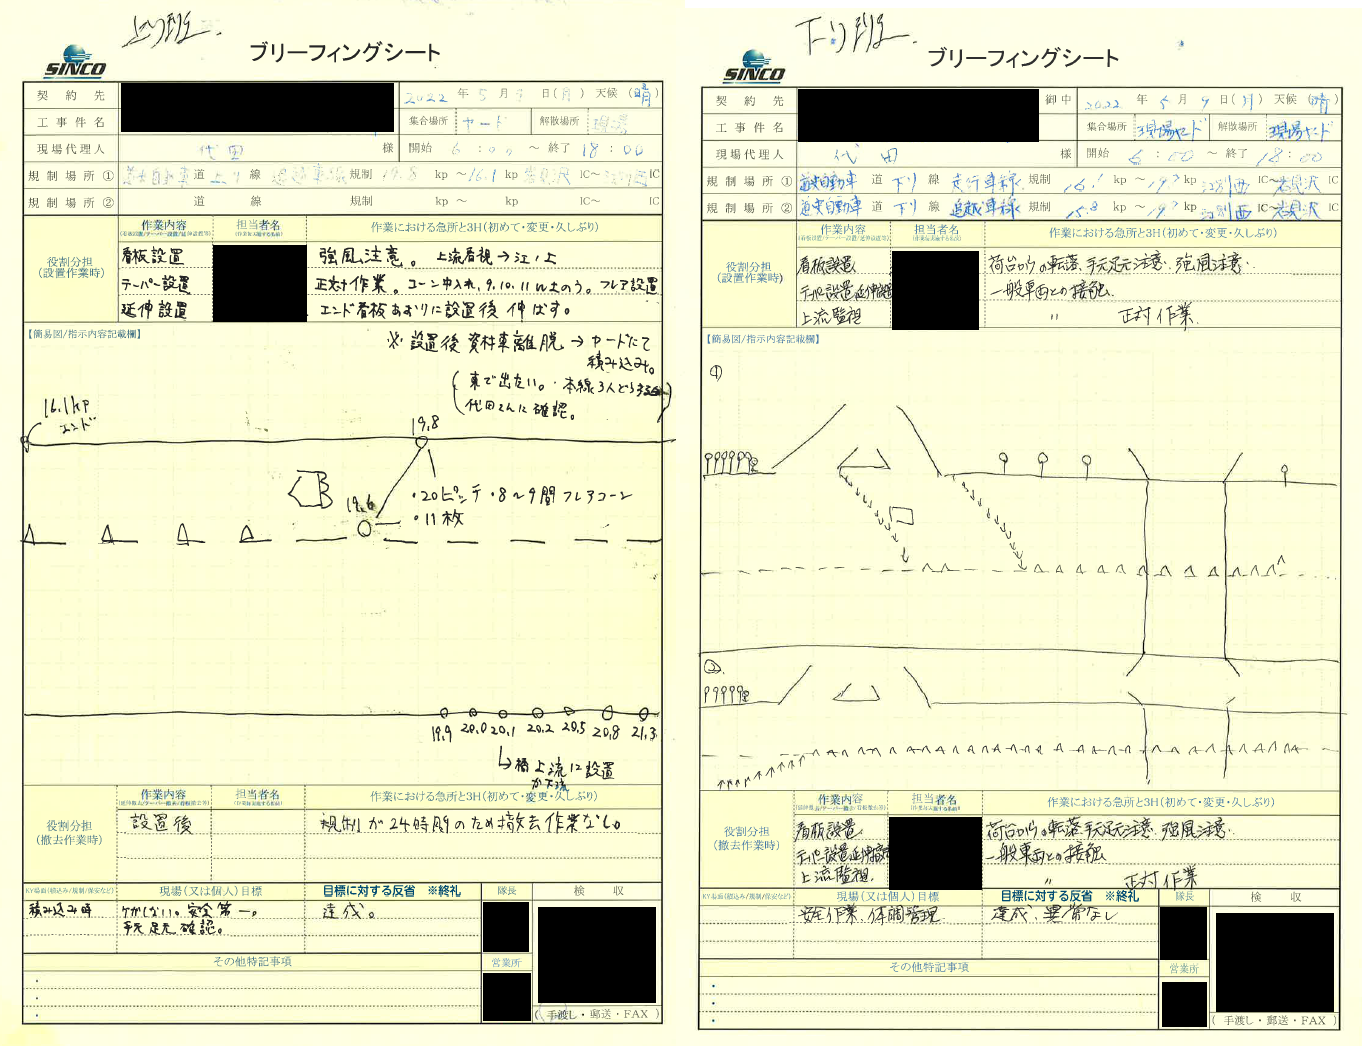 上り段
ブリーフィングシート
SINCO
契約先
2022 年 5 月 9 日(月) 天候(晴)
工事件名
集合場所 ヤード 解散場所 現場
現場代理人 代田 様 開始 6:00 ～ 終了 18:00
規制場所① 道央自動車 道 上り 線 追越車線 規制 19.8 kp ～ 16.1 kp 岩見沢 IC～ 江別西 IC
規制場所② 道 線 規制 kp ～ kp IC～ IC
役割分担
(設置作業時)
作業内容 担当者名 作業における急所と3H(初めて・変更・久しぶり)
看板設置 強風注意。 上流看視→江ノ上
テーパー設置 正対作業。コーン中入れ、9.10.11は土のう。フレア設置
延伸設置 エンド看板あおりに設置後 伸ばす。
【簡易図/指示内容記載欄】
※設置後 資材車離脱 → ヤードにて
積み込み。
(車で出ない。・本線3人どうする
代田さんに確認。)
16.1kp
エンド
19.8
19.6
・20ピッチ・8～9間フレアコーン
・11枚
19.9 20.0 20.1 20.2 20.5 20.8 21.3
↳橋 上流に設置
か下流
役割分担
(撤去作業時)
作業内容 担当者名 作業における急所と3H(初めて・変更・久しぶり)
設置後 規制が24時間のため撤去作業なし。
KY場面(積込み/規制/保安など) 現場(又は個人)目標 目標に対する反省 ※終礼 隊長 検収
積み込み時 ケガしない。安全第一。 達成。
手元 足元 確認。
その他特記事項 営業所
(手渡し・郵送・FAX)
下り段
ブリーフィングシート
SINCO
契約先 御中
2022 年 5 月 9 日(月) 天候(晴)
工事件名
集合場所 現場ヤード 解散場所 現場ヤード
現場代理人 代田 様 開始 6:00 ～ 終了 18:00
規制場所① 道央自動車 道 下り 線 走行車線 規制 16.1 kp ～19.? kp 江別西 IC～岩見沢 IC
規制場所② 道央自動車 道 下り 線 追越車線 規制 15.8 kp ～19.? kp 江別西 IC～岩見沢 IC
役割分担
(設置作業時)
作業内容 担当者名 作業における急所と3H(初めて・変更・久しぶり)
看板設置 荷台からの転落、手元足元注意、強風注意
テーパー設置延伸設置 一般車両との接触
上流監視 〃 正対作業
【簡易図/指示内容記載欄】
①
②
役割分担
(撤去作業時)
作業内容 担当者名 作業における急所と3H(初めて・変更・久しぶり)
看板設置 荷台からの転落、手元足元注意、強風注意
テーパー設置延伸設置 一般車両との接触
上流監視 〃 正対作業
KY場面(積込み/規制/保安など) 現場(又は個人)目標 目標に対する反省 ※終礼 隊長 検収
安全作業、体調管理 達成、異常なし
その他特記事項 営業所
(手渡し・郵送・FAX)